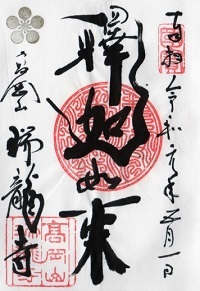 奉拝 令和元年五月一日
釋迦如来
高岡山
瑞龍寺
高岡山